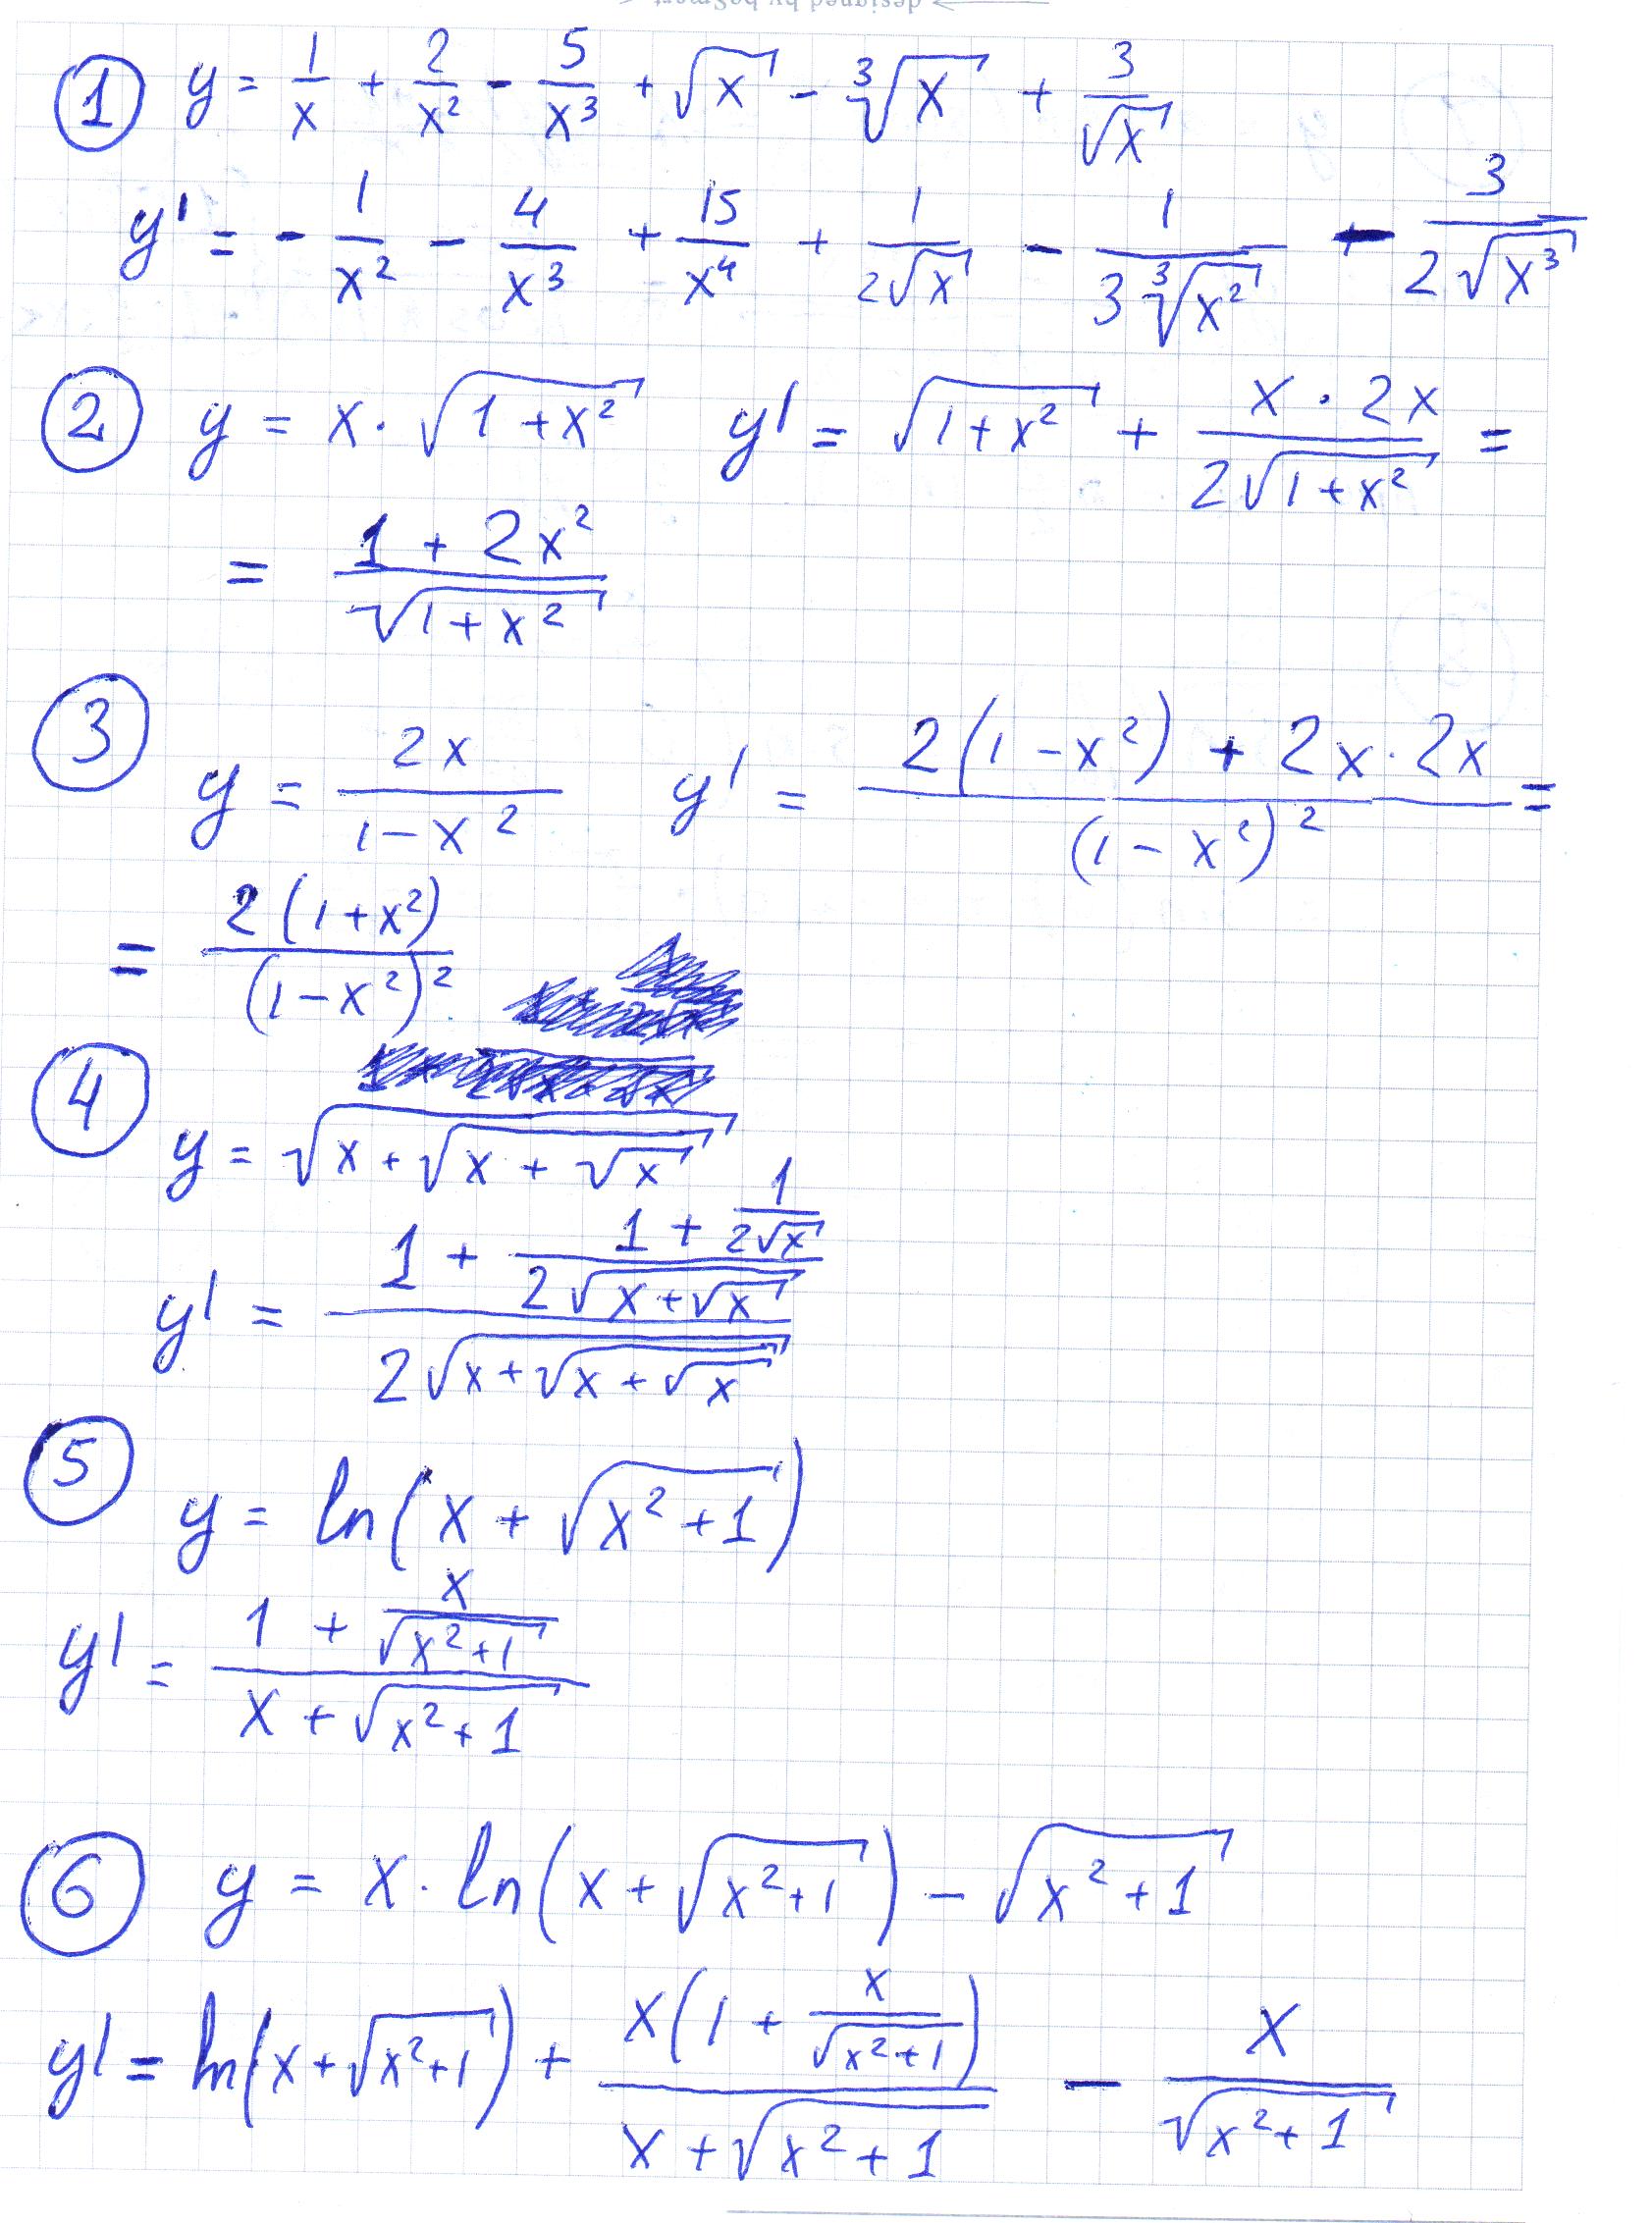 designed by beSmart
① y = 1/x + 2/x² - 5/x³ + √x - ∛x + 3/√x
y' = - 1/x² - 4/x³ + 15/x⁴ + 1/(2√x) - 1/(3∛(x²)) - 3/(2√(x³))
② y = x · √(1+x²) y' = √(1+x²) + (x · 2x)/(2√(1+x²)) =
= (1 + 2x²)/√(1+x²)
③ y = 2x/(1-x²) y' = (2(1-x²) + 2x · 2x)/(1-x²)² =
= 2(1+x²)/(1-x²)²
④ y = √(x + √(x + √x))
y' = (1 + (1 + 1/(2√x))/(2√(x+√x)))/(2√(x+√(x+√x)))
⑤ y = ln(x + √(x²+1))
y' = (1 + x/√(x²+1))/(x + √(x²+1))
⑥ y = x · ln(x + √(x²+1)) - √(x²+1)
y' = ln(x+√(x²+1)) + x(1 + x/√(x²+1))/(x+√(x²+1)) - x/√(x²+1)